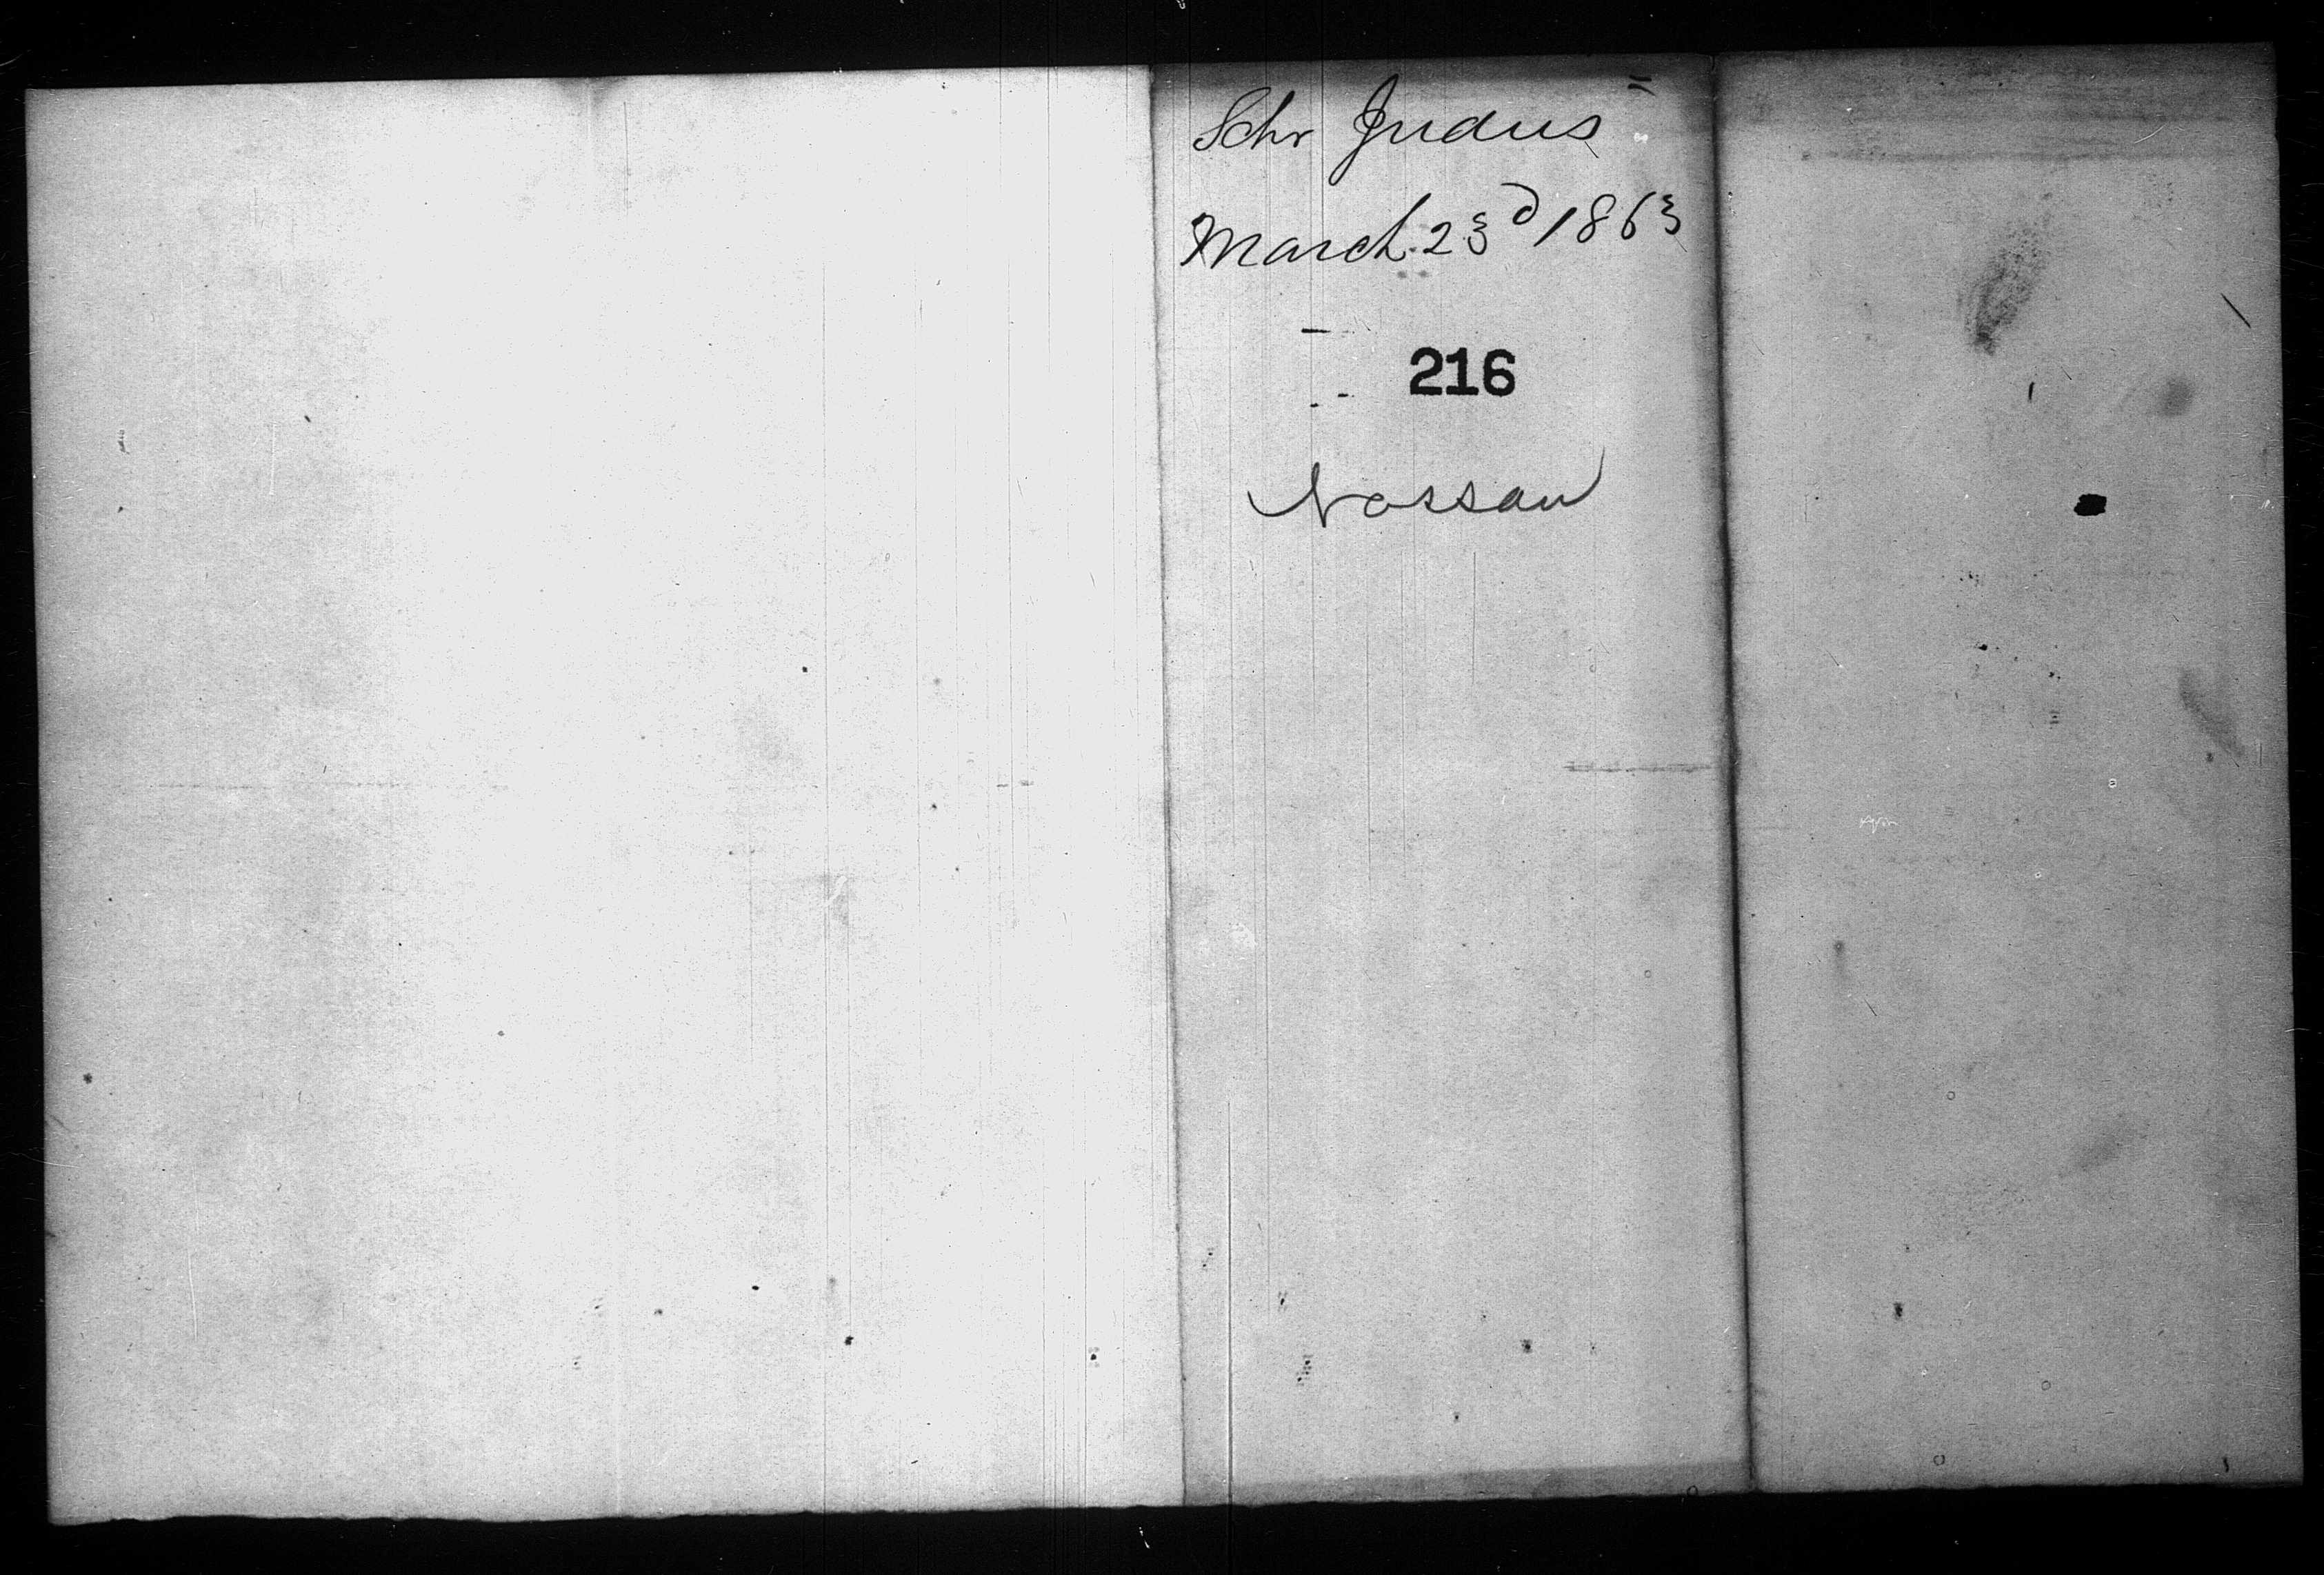 Schr Indus
March 23d 1863
216
Nassau